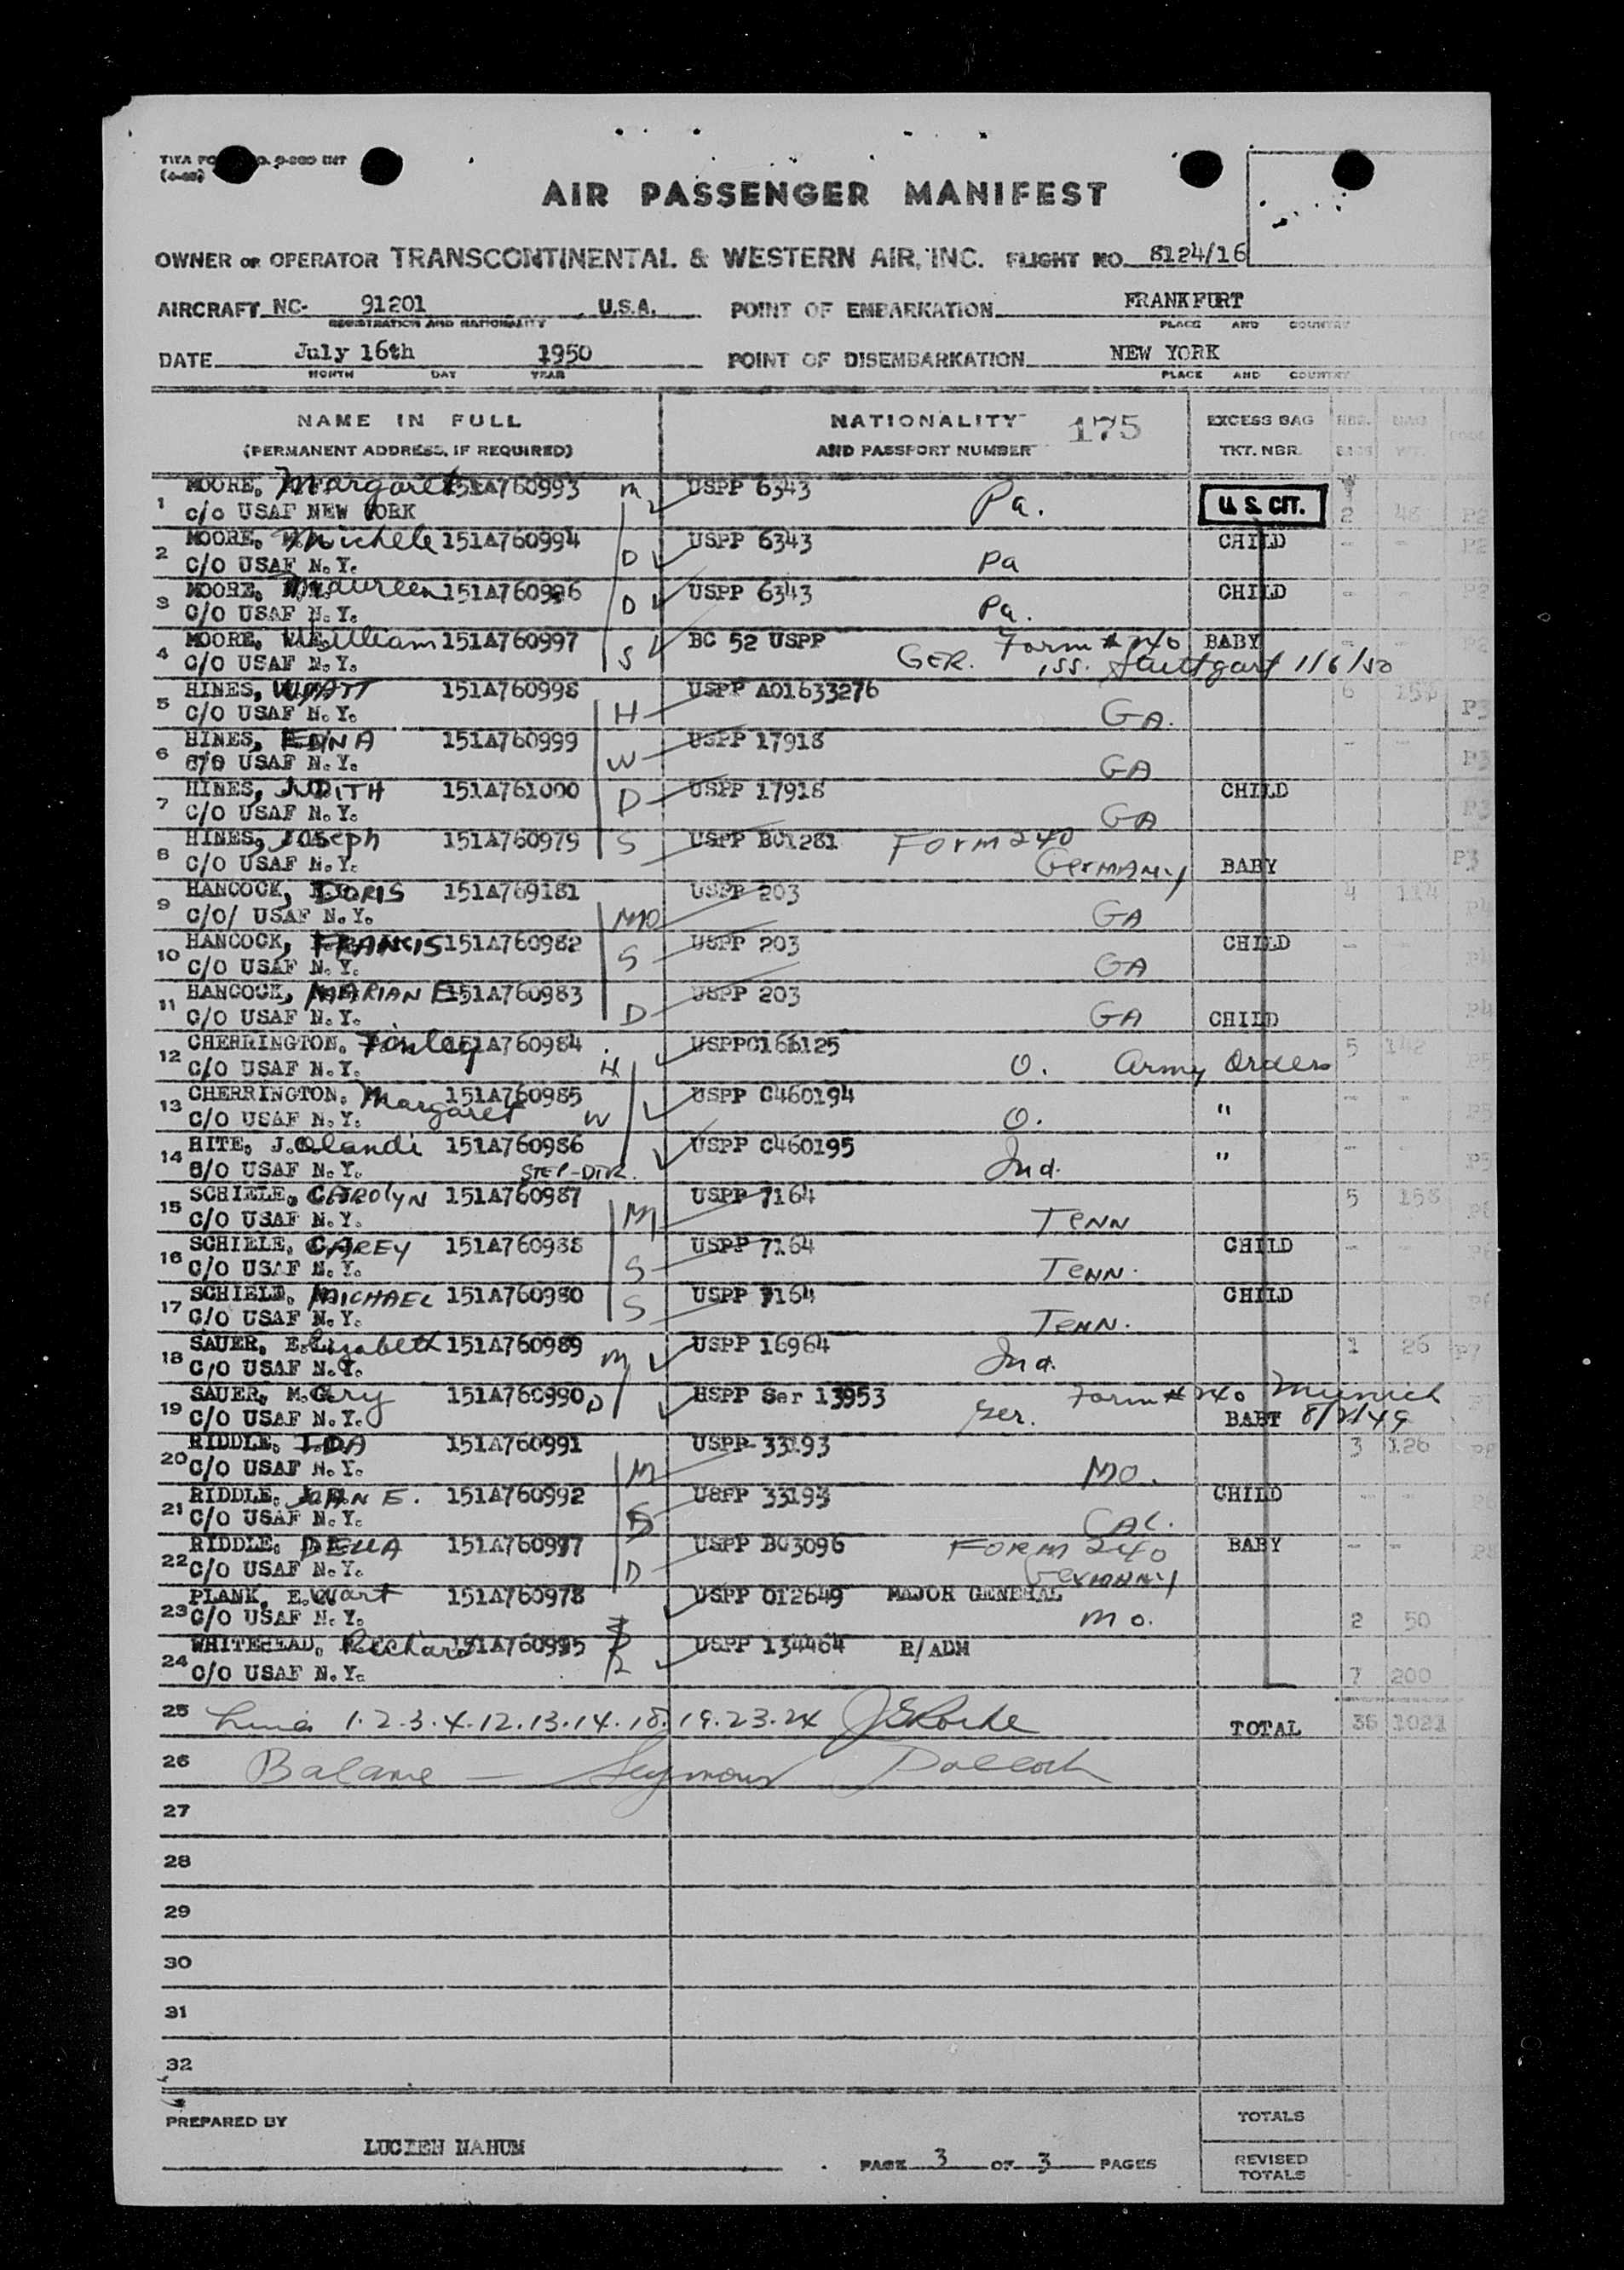 AIR PASSENGER MANIFEST
OWNER OR OPERATOR TRANSCONTINENTAL & WESTERN AIR, INC. FLIGHT NO. 8124/16
AIRCRAFT NC- 91201 U.S.A. POINT OF EMBARKATION FRANKFURT
REGISTRATION AND NATIONALITY PLACE AND COUNTRY
DATE July 16th 1950 POINT OF DISEMBARKATION NEW YORK
MONTH DAY YEAR PLACE AND COUNTRY
NAME IN FULL NATIONALITY 175 EXCESS BAG
(PERMANENT ADDRESS, IF REQUIRED) AND PASSPORT NUMBER TKT. NBR.
1 MOORE, Margaret 151A760993 M USPP 6343 Pa. U. S. CIT.
c/o USAF NEW YORK 2 48 P2
2 MOORE, Michele 151A760994 D USPP 6343 Pa CHILD - - P2
C/O USAF N.Y.
3 MOORE, Maureen 151A760996 D USPP 6343 Pa. CHILD - - P2
C/O USAF N.Y.
4 MOORE, William 151A760997 S BC 52 USPP GER. Form # 240 BABY - P2
C/O USAF N.Y. iss. Stuttgart 1/6/50
5 HINES, WYATT 151A760998 H USPP A01633276 GA. 6 P3
C/O USAF N.Y.
6 HINES, EDNA 151A760999 W USPP 17918 GA - - P3
C/O USAF N.Y.
7 HINES, JUDITH 151A761000 D USPP 17918 GA CHILD P3
C/O USAF N.Y.
8 HINES, Joseph 151A760979 S USPP BC1281 Form 240 P3
C/O USAF N.Y. GERMANY BABY
9 HANCOCK, DORIS 151A769181 MO USPP 203 GA 4 114 P4
C/O/ USAF N.Y.
10 HANCOCK, FRANCIS 151A760982 S USPP 203 GA CHILD - - P4
C/O USAF N.Y.
11 HANCOCK, MARIAN E 151A760983 D USPP 203 GA CHILD P4
C/O USAF N.Y.
12 CHERRINGTON, 151A760984 H USPPC166125 O. Army Orders 5 142 P5
C/O USAF N.Y.
13 CHERRINGTON, Margaret 151A760985 W USPP C460194 O. " - - P5
C/O USAF N.Y.
14 HITE, J. 151A760986 STEP-DTR. USPP C460195 Ind. " - - P5
C/O USAF N.Y.
15 SCHIELE, CAROLYN 151A760987 M USPP 7164 TENN 5 158 P6
C/O USAF N.Y.
16 SCHIELE, CAREY 151A760988 S USPP 7164 TENN. CHILD - - P6
C/O USAF N.Y.
17 SCHIELE, MICHAEL 151A760980 S USPP 7164 TENN. CHILD P6
C/O USAF N.Y.
18 SAUER, Elizabeth 151A760989 M USPP 16964 Ind. 1 26 P7
C/O USAF N.Y.
19 SAUER, M. Gry 151A760990 D USPP Ser 13953 Ger. Form # 240 Munich
C/O USAF N.Y. BABY
20 RIDDLE, IDA 151A760991 M USPP 33193 MO. 3 126 P8
C/O USAF N.Y.
21 RIDDLE, JOAN E. 151A760992 USPP 33193 CAL. CHILD - -
C/O USAF N.Y.
22 RIDDLE, DELLA 151A760977 D USPP BC3096 FORM 240 BABY - - P8
C/O USAF N.Y. GERMANY
23 PLANK, Ewart 151A760978 USPP 012649 MAJOR GENERAL Mo. 2 50
C/O USAF N.Y.
24 WHITEHEAD, Richard 151A760995 USPP 134464 R/ADM 7 200
C/O USAF N.Y.
25 Lines 1.2.3.4.12.13.14.18.19.23.24 TOTAL 35 1021
26 Balance — Seymour Pollock
27
28
29
30
31
32
PREPARED BY LUCIEN NAHUM
PAGE 3 OF 3 PAGES
TOTALS
REVISED TOTALS